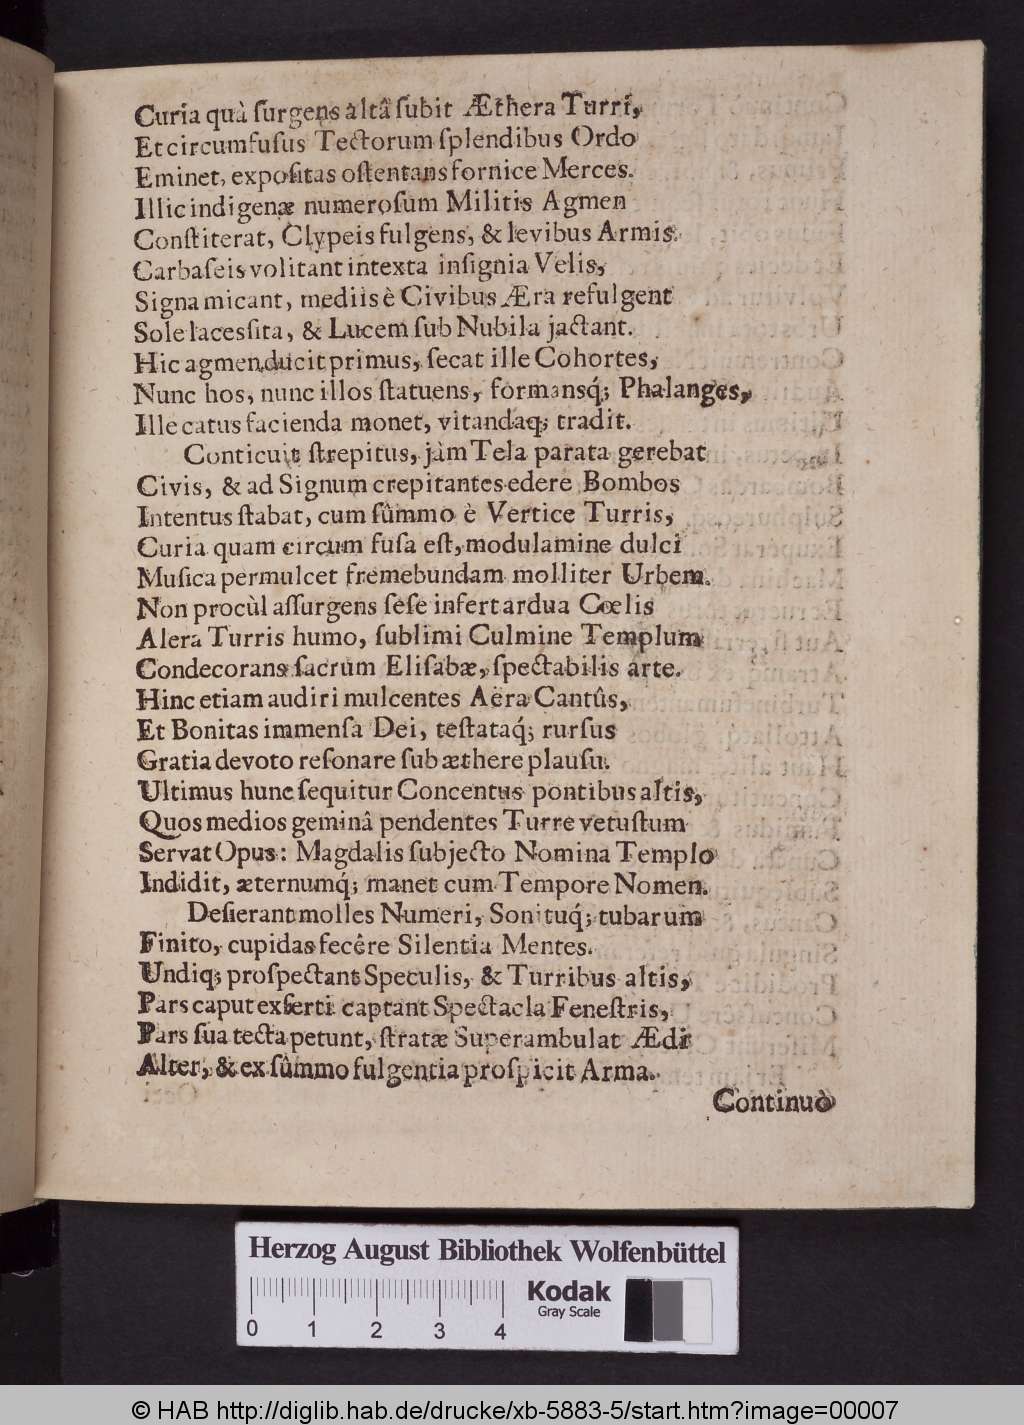 Curia quà ſurgens altâ ſubit Æthera Turri,
Et circumfuſus Tectorum ſplendibus Ordo
Eminet, expoſitas oſtentans fornice Merces.
Illic indigenæ numeroſum Militis Agmen
Conſtiterat, Clypeis fulgens, & levibus Armis.
Carbaſeis volitant intexta inſignia Velis,
Signa micant, mediis è Civibus Æra refulgent
Sole laceſſita, & Lucem ſub Nubila jactant.
Hic agmen ducit primus, ſecat ille Cohortes,
Nunc hos, nunc illos ſtatuens, formansq́; Phalanges,
Ille catus facienda monet, vitandaq; tradit.
Conticuit ſtrepitus, jàm Tela parata gerebat
Civis, & ad Signum crepitantes edere Bombos
Intentus ſtabat, cum ſûmmo è Vertice Turris,
Curia quam circum fuſa eſt, modulamine dulci
Muſica permulcet fremebundam molliter Urbem.
Non procùl aſſurgens ſeſe infert ardua Cœlis
Alera Turris humo, ſublimi Culmine Templum
Condecorans ſacrum Eliſabæ, ſpectabilis arte.
Hinc etiam audiri mulcentes Aëra Cantûs,
Et Bonitas immenſa Dei, teſtataq́; rurſus
Gratia devoto reſonare ſub æthere plauſu.
Ultimus hunc ſequitur Concentus pontibus altis,
Quos medios geminâ pendentes Turre vetuſtum
Servat Opus: Magdalis ſubjecto Nomina Templo
Indidit, æternumq́; manet cum Tempore Nomen.
Deſierant molles Numeri, Sonituq́; tubarum
Finito, cupidas fecêre Silentia Mentes.
Undiq; proſpectant Speculis, & Turribus altis,
Pars caput exſerti captant Spectacla Feneſtris,
Pars ſua tecta petunt, ſtratæ Superambulat Ædi
Alter, & ex ſûmmo fulgentia proſpicit Arma.
Continuò
Herzog August Bibliothek Wolfenbüttel
Kodak
Gray Scale
0 1 2 3 4
© HAB http://diglib.hab.de/drucke/xb-5883-5/start.htm?image=00007